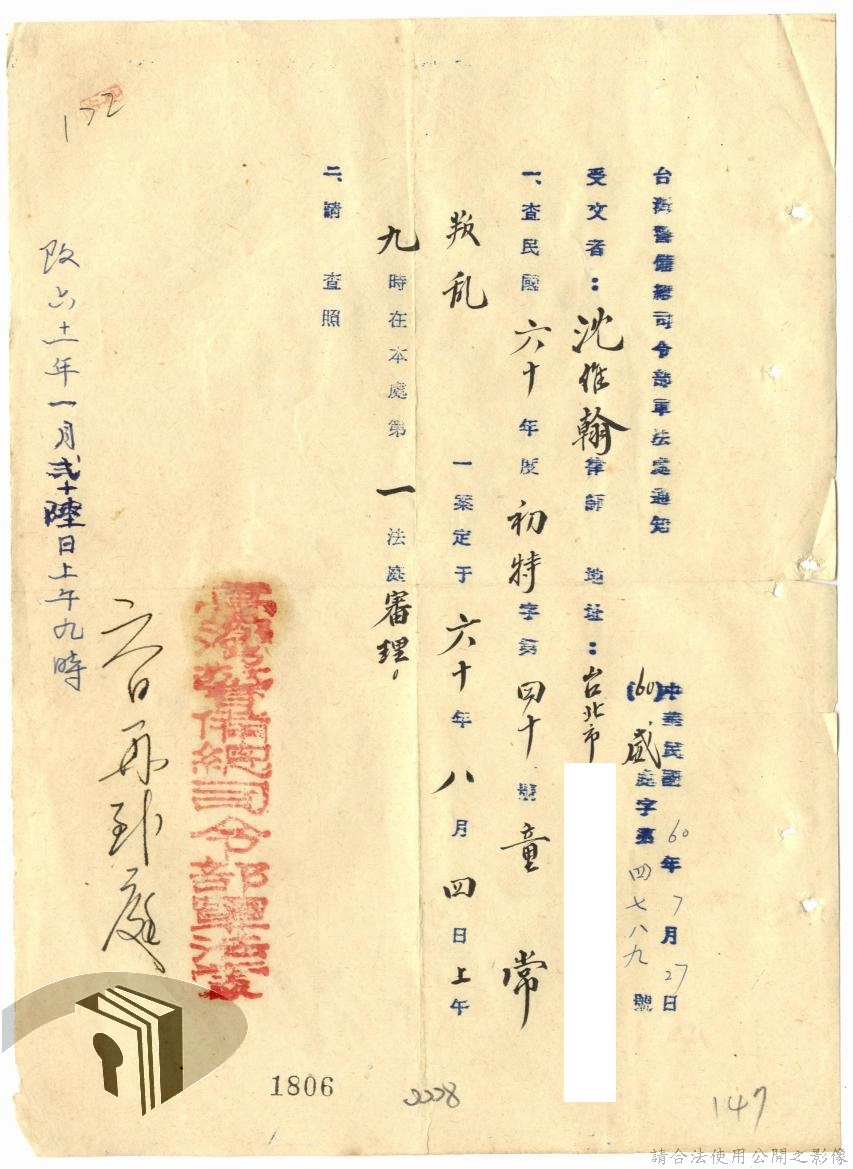 台灣警備總司令部軍法處通知
中華民國60年7月27日
(60)盛處字第四七八九號
受文者：沈惟翰律師 地址：台北市
一、查民國六十年度初特字第四十號童 常
叛乱 一案定于六十年八月四日上午
九時在本處第一法庭審理。
二、請 查照
臺灣警備總司令部軍法處
再到庭
改六十一年一月弍十陸日上午九時
172
1806
2228
147
請合法使用公開之影像